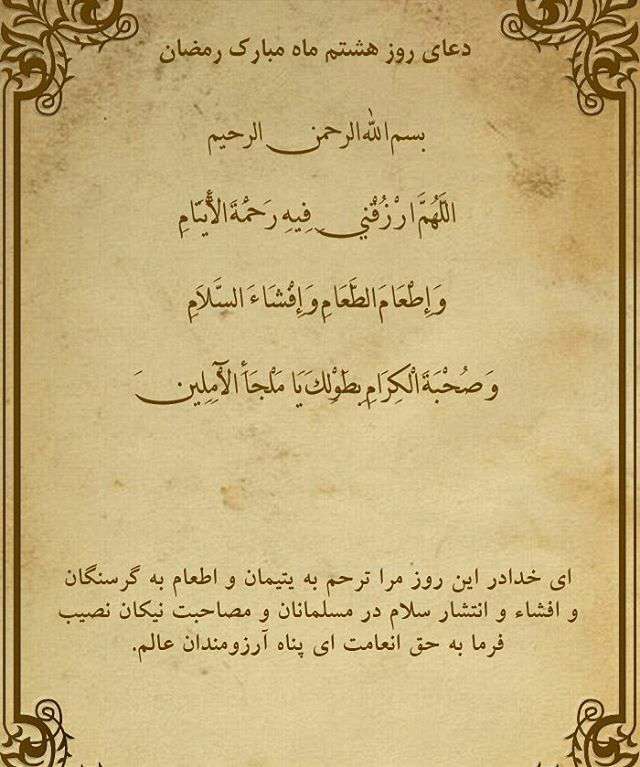 دعای روز هشتم ماه مبارک رمضان
بسم الله الرحمن الرحیم
اللَّهُمَّ ارْزُقْنِي فِيهِ رَحْمَةَ الْأَيْتَامِ
وَ إِطْعَامَ الطَّعَامِ وَ إِفْشَاءَ السَّلَامِ
وَ صُحْبَةَ الْكِرَامِ بِطَوْلِكَ يَا مَلْجَأَ الْآمِلِينَ
ای خدادر این روز مرا ترحم به یتیمان و اطعام به گرسنگان
و افشاء و انتشار سلام در مسلمانان و مصاحبت نیکان نصیب
فرما به حق انعامت ای پناه آرزومندان عالم.